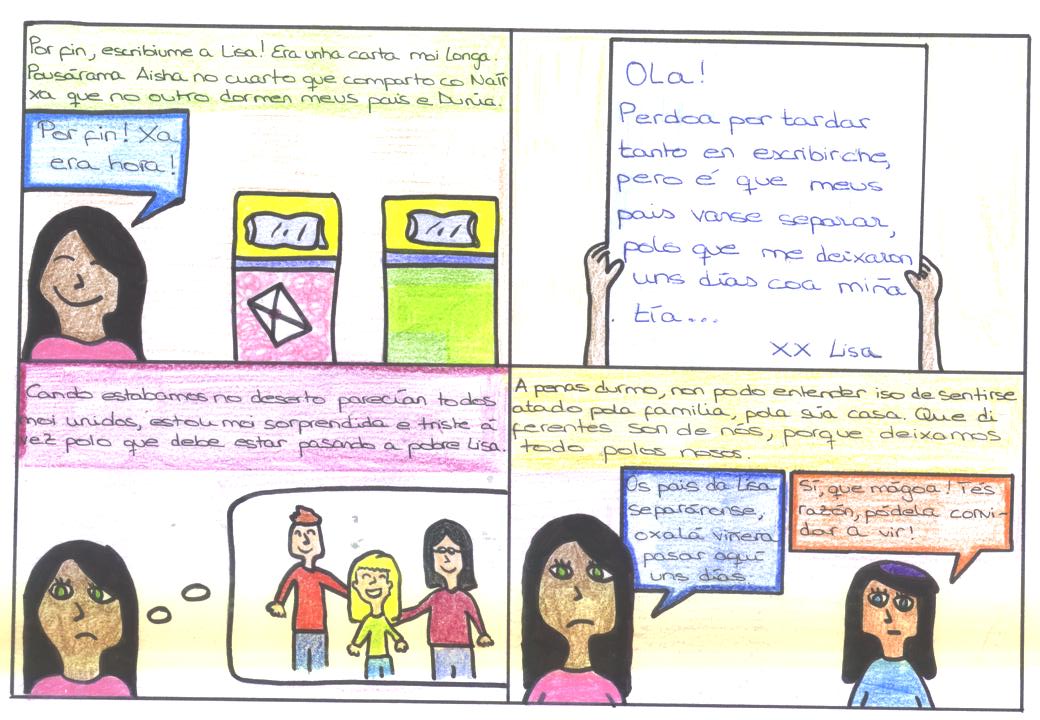 Por fin, escribiume a Lisa! Era unha carta moi longa.
Pousárama Aisha no cuarto que comparto co Naïr
xa que no outro dormen meus pais e Dunia.
Por fin! Xa
era hora!
OLa!
Perdoa por tardar
tanto en escribirche,
pero é que meus
pais vanse separar,
polo que me deixaron
uns días coa miña
tía...
XX Lisa
Cando estabamos no deserto parecían todos
moi unidos, estou moi sorprendida e triste á
vez polo que debe estar pasando a pobre Lisa.
A penas durmo, non podo entender iso de sentirse
atado pola familia, pola súa casa. Que di
ferentes son de nós, porque deixamos
todo polos nosos.
Os pais da Lisa
separáronse,
oxalá viñera
pasar aquí
uns días.
Sí, que mágoa! Tés
razón, pódela convi-
dar a vir!